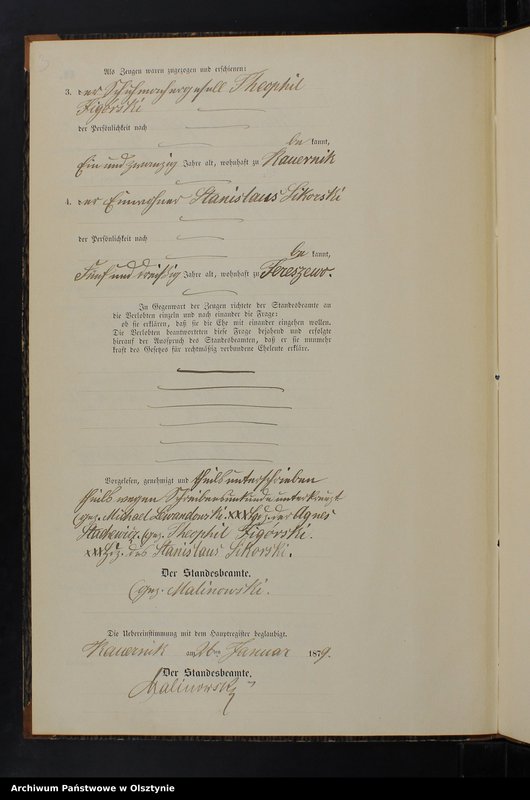 Als Zeugen waren zugezogen und erschienen:
3. der Schuhmachergesell Theophil
Zigorski
der Persönlichkeit nach
be kannt,
Ein und zwanzig Jahre alt, wohnhaft zu Kauernik
4. der Einwohner Stanislaus Sikorski
der Persönlichkeit nach
be kannt,
Fünf und dreißig Jahre alt, wohnhaft zu Tereszewo.
In Gegenwart der Zeugen richtete der Standesbeamte an
die Verlobten einzeln und nach einander die Frage:
ob sie erklären, daß sie die Ehe mit einander eingehen wollen.
Die Verlobten beantworteten diese Frage bejahend und erfolgte
hierauf der Ausspruch des Standesbeamten, daß er sie nunmehr
kraft des Gesetzes für rechtmäßig verbundene Eheleute erkläre.
Vorgelesen, genehmigt und theils unterschrieben
theils wegen Schreibensunkunde unterkreuzt
(gez. Michael Lewandowski. XXX Hdz. der Agnes
gez. Theophil Zigorski.
XXX Hdz. des Stanislaus Sikorski.
Der Standesbeamte.
(gez. Malinowski.
Die Uebereinstimmung mit dem Hauptregister beglaubigt.
Kauernik am 26ten Januar 1879.
Der Standesbeamte.
Malinowski
Archiwum Państwowe w Olsztynie